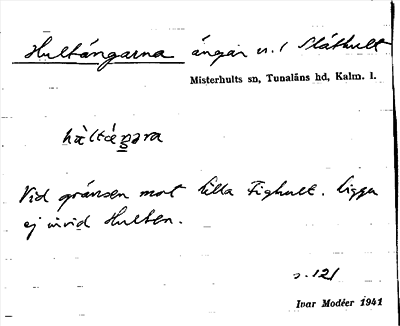 Hultängarna ängar u. / Släthult
Misterhults sn, Tunaläns hd, Kalm. l.
Vid gränsen mot Lilla Fighult. Ligger
ej invid Hulten.
s. 121
Ivar Modéer 1941